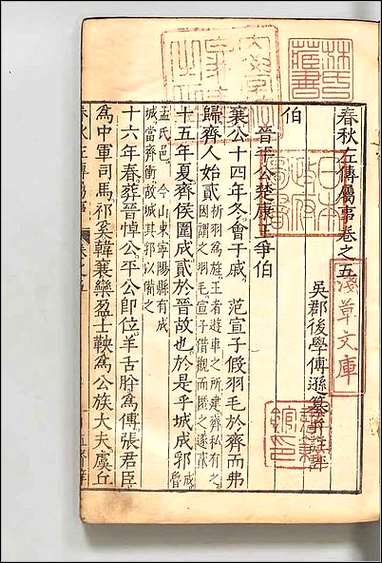 春秋左傳屬事卷之五
吳郡後學傅遜纂并註評
伯
晉平公楚康王爭伯
襄公十四年冬會于戚范宣子假羽毛於齊而弗
歸齊人始貳析羽爲旌王者遊車之所建齊私有之
因謂之羽毛宣子借觀而匿之遂
十五年夏齊侯圍成貳於晉故也於是乎城成郛
孟氏邑今山東寧陽縣有成
城當齊衝故城其郛以備之
十六年春葬晉悼公平公即位羊舌肸爲傅張君臣
爲中軍司馬祁奚韓襄欒盈士鞅爲公族大夫虞丘
林氏藏書
日本政府圖書
淺草文庫